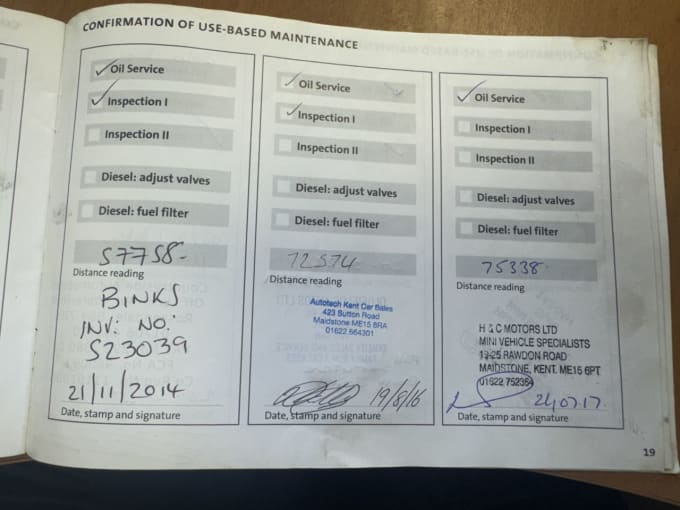 CONFIRMATION OF USE-BASED MAINTENANCE
Oil Service
Inspection I
Inspection II
Diesel: adjust valves
Diesel: fuel filter
57758-
Distance reading
BINKS
INV: NO:
S23039
21/11/2014
Date, stamp and signature
Oil Service
Inspection I
Inspection II
Diesel: adjust valves
Diesel: fuel filter
72574
Distance reading
Autotech Kent Car Sales
423 Sutton Road
Maidstone ME15 8RA
01622 664301
19/8/16
Date, stamp and signature
Oil Service
Inspection I
Inspection II
Diesel: adjust valves
Diesel: fuel filter
75338-
Distance reading
H & C MOTORS LTD
MINI VEHICLE SPECIALISTS
19-25 RAWDON ROAD
MAIDSTONE, KENT. ME15 6PT
01622 752354
24.07.17.
Date, stamp and signature
19